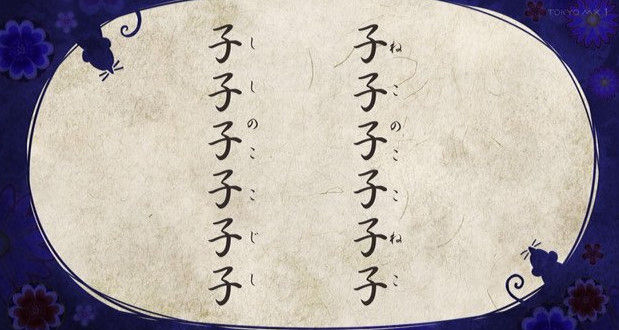 TOKYO MX 1
子子子子子子
ねこのここねこ
子子子子子子
ししのここじし